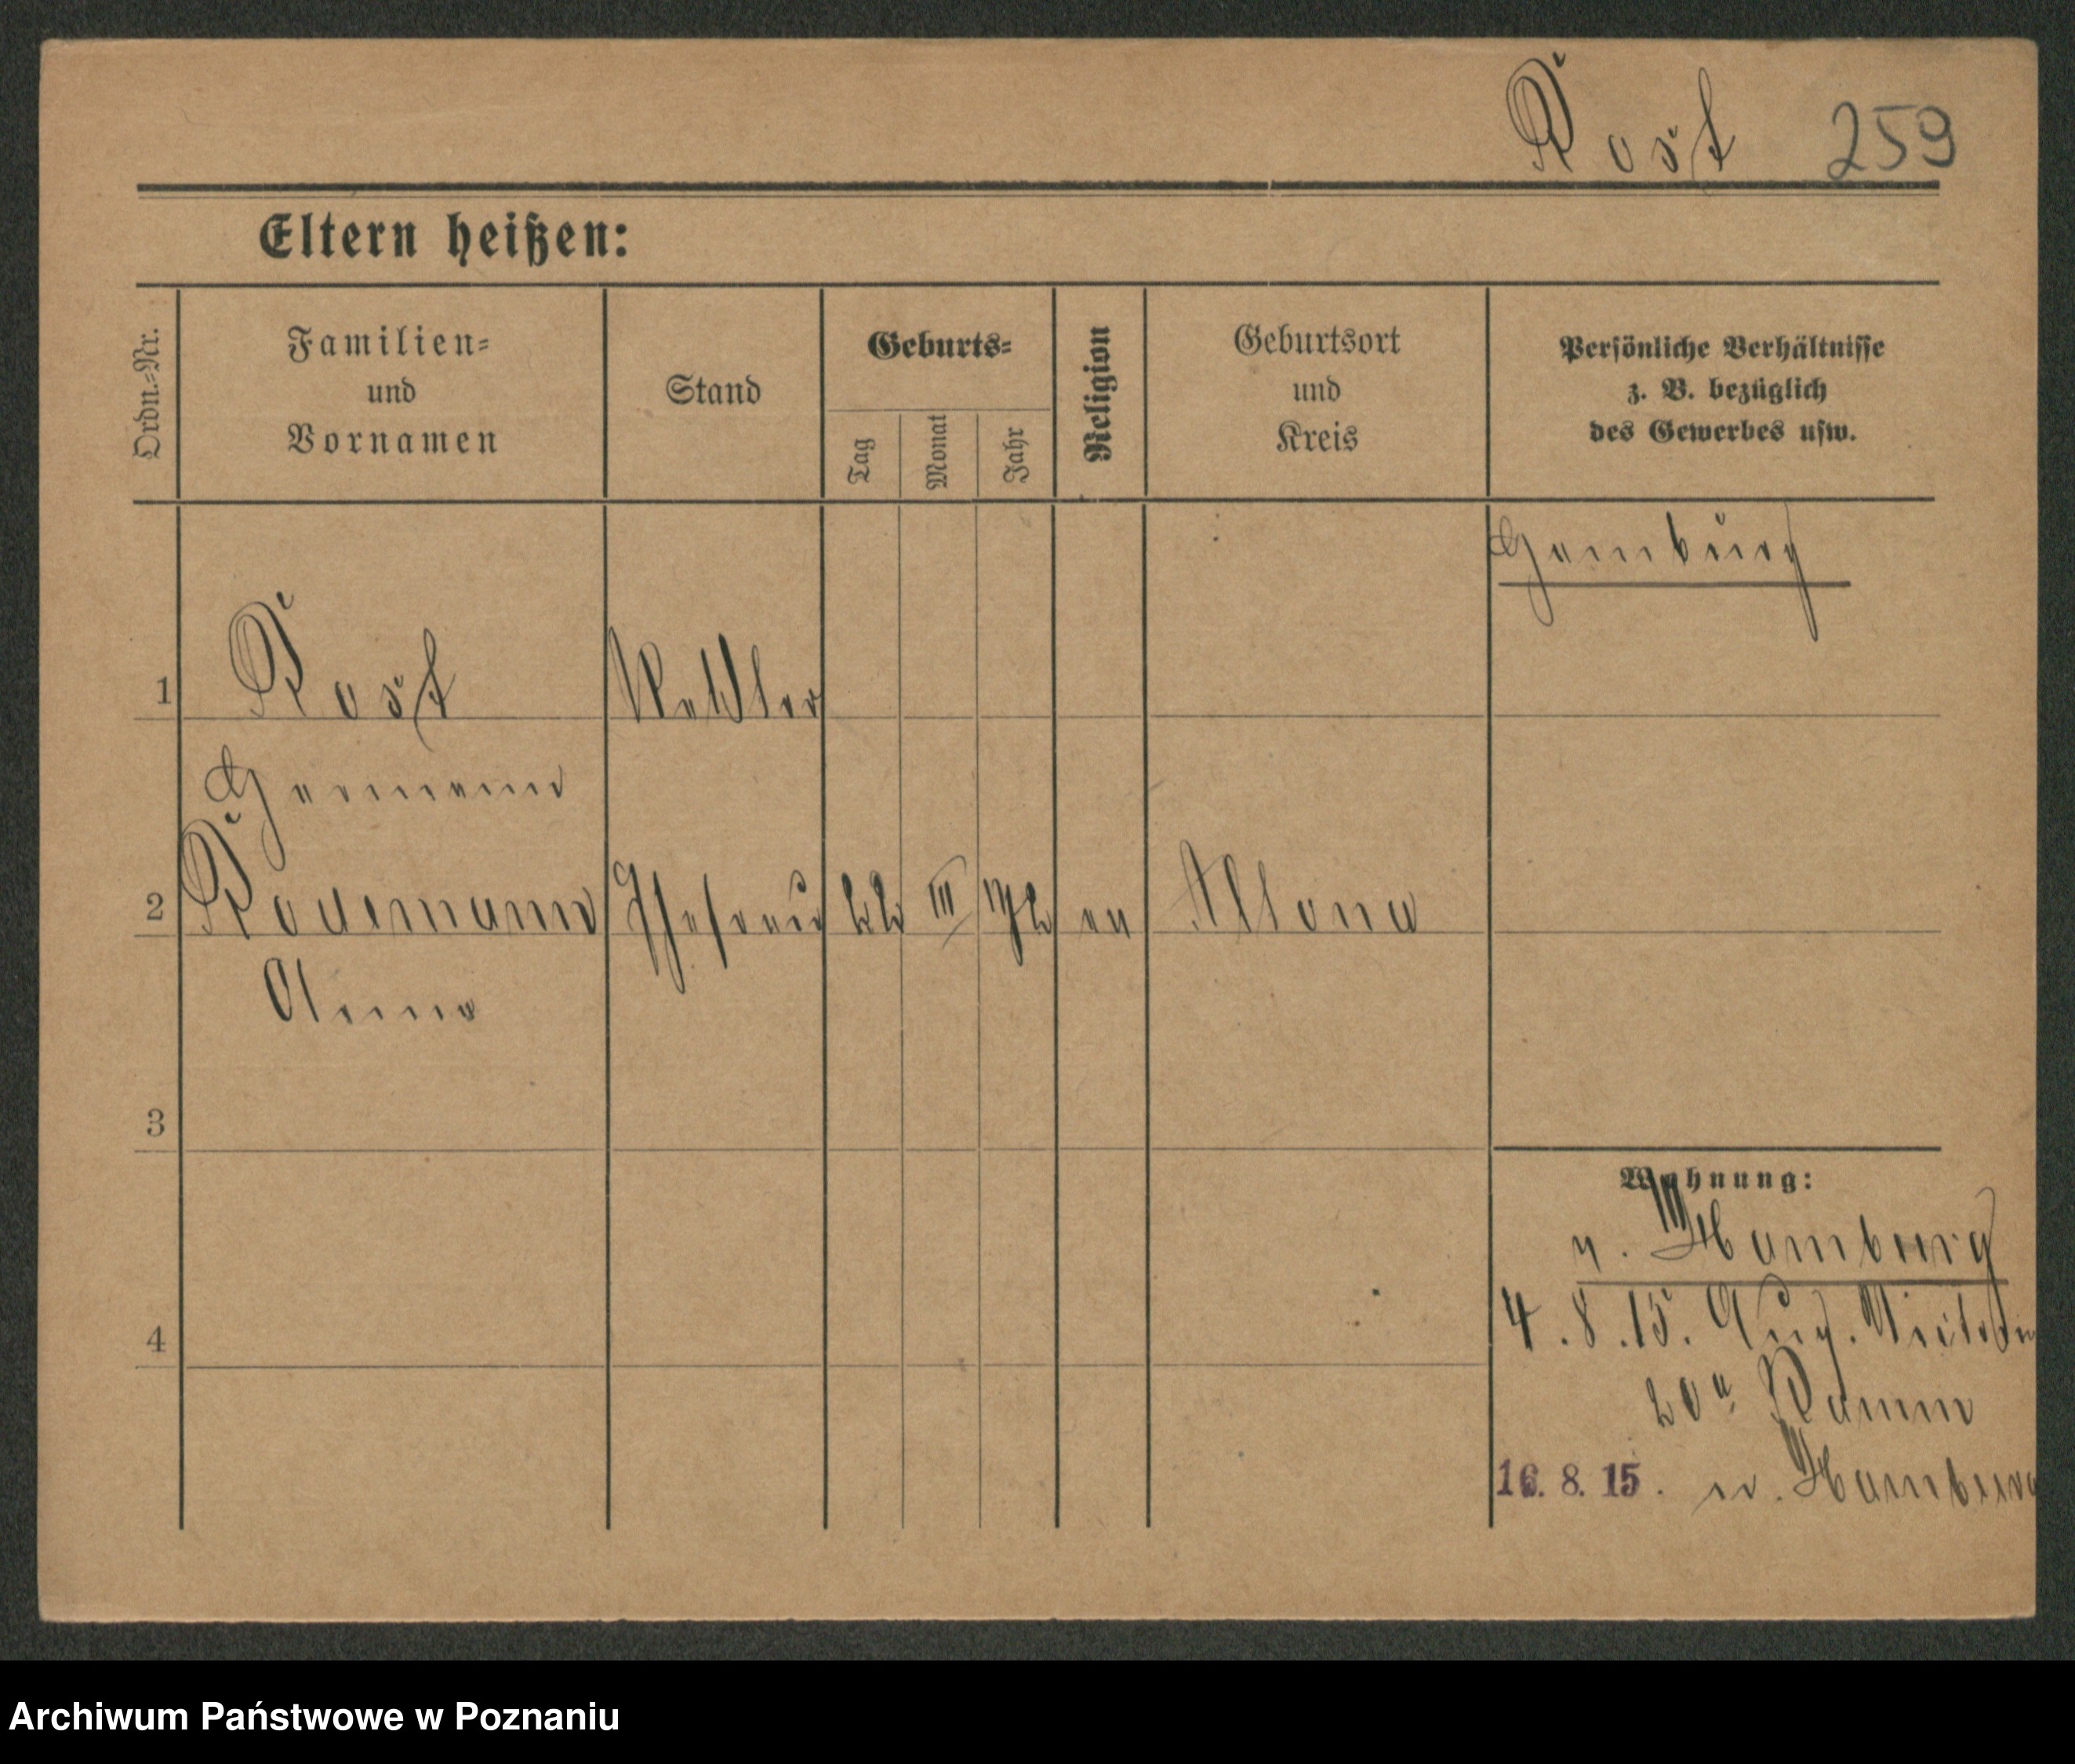 Post 259
Eltern heißen:
Ordn.-Nr.
Familien-
und
Vornamen
Stand
Geburts-
Tag
Monat
Jahr
Religion
Geburtsort
und
Kreis
Persönliche Verhältnisse
z. B. bezüglich
des Gewerbes usw.
Hamburg
1 Post
Hermann
2 Ehefrau 22 III ev Altona
Anna
3
4
Wohnung:
v. Hamburg
4.8.15.
20
16.8.15. n. Hamburg
Archiwum Państwowe w Poznaniu